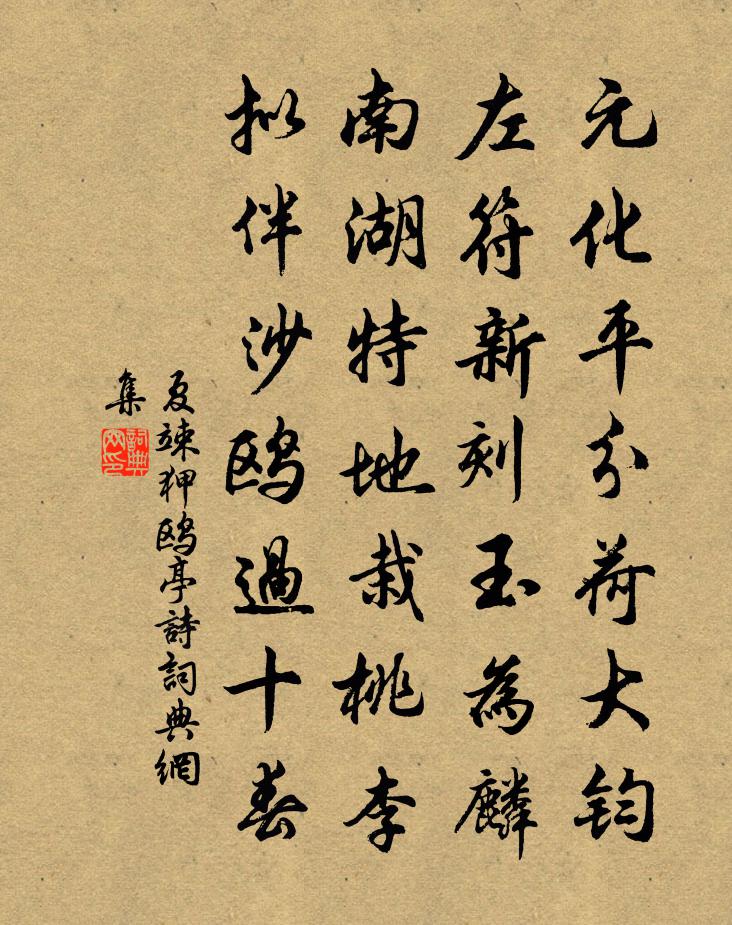 元化平分荷大钧
左符新刻玉為麟
南湖特地栽桃李
拟伴沙鸥過十春
夏竦狎鸥亭詩詞典網
集
詞典網印